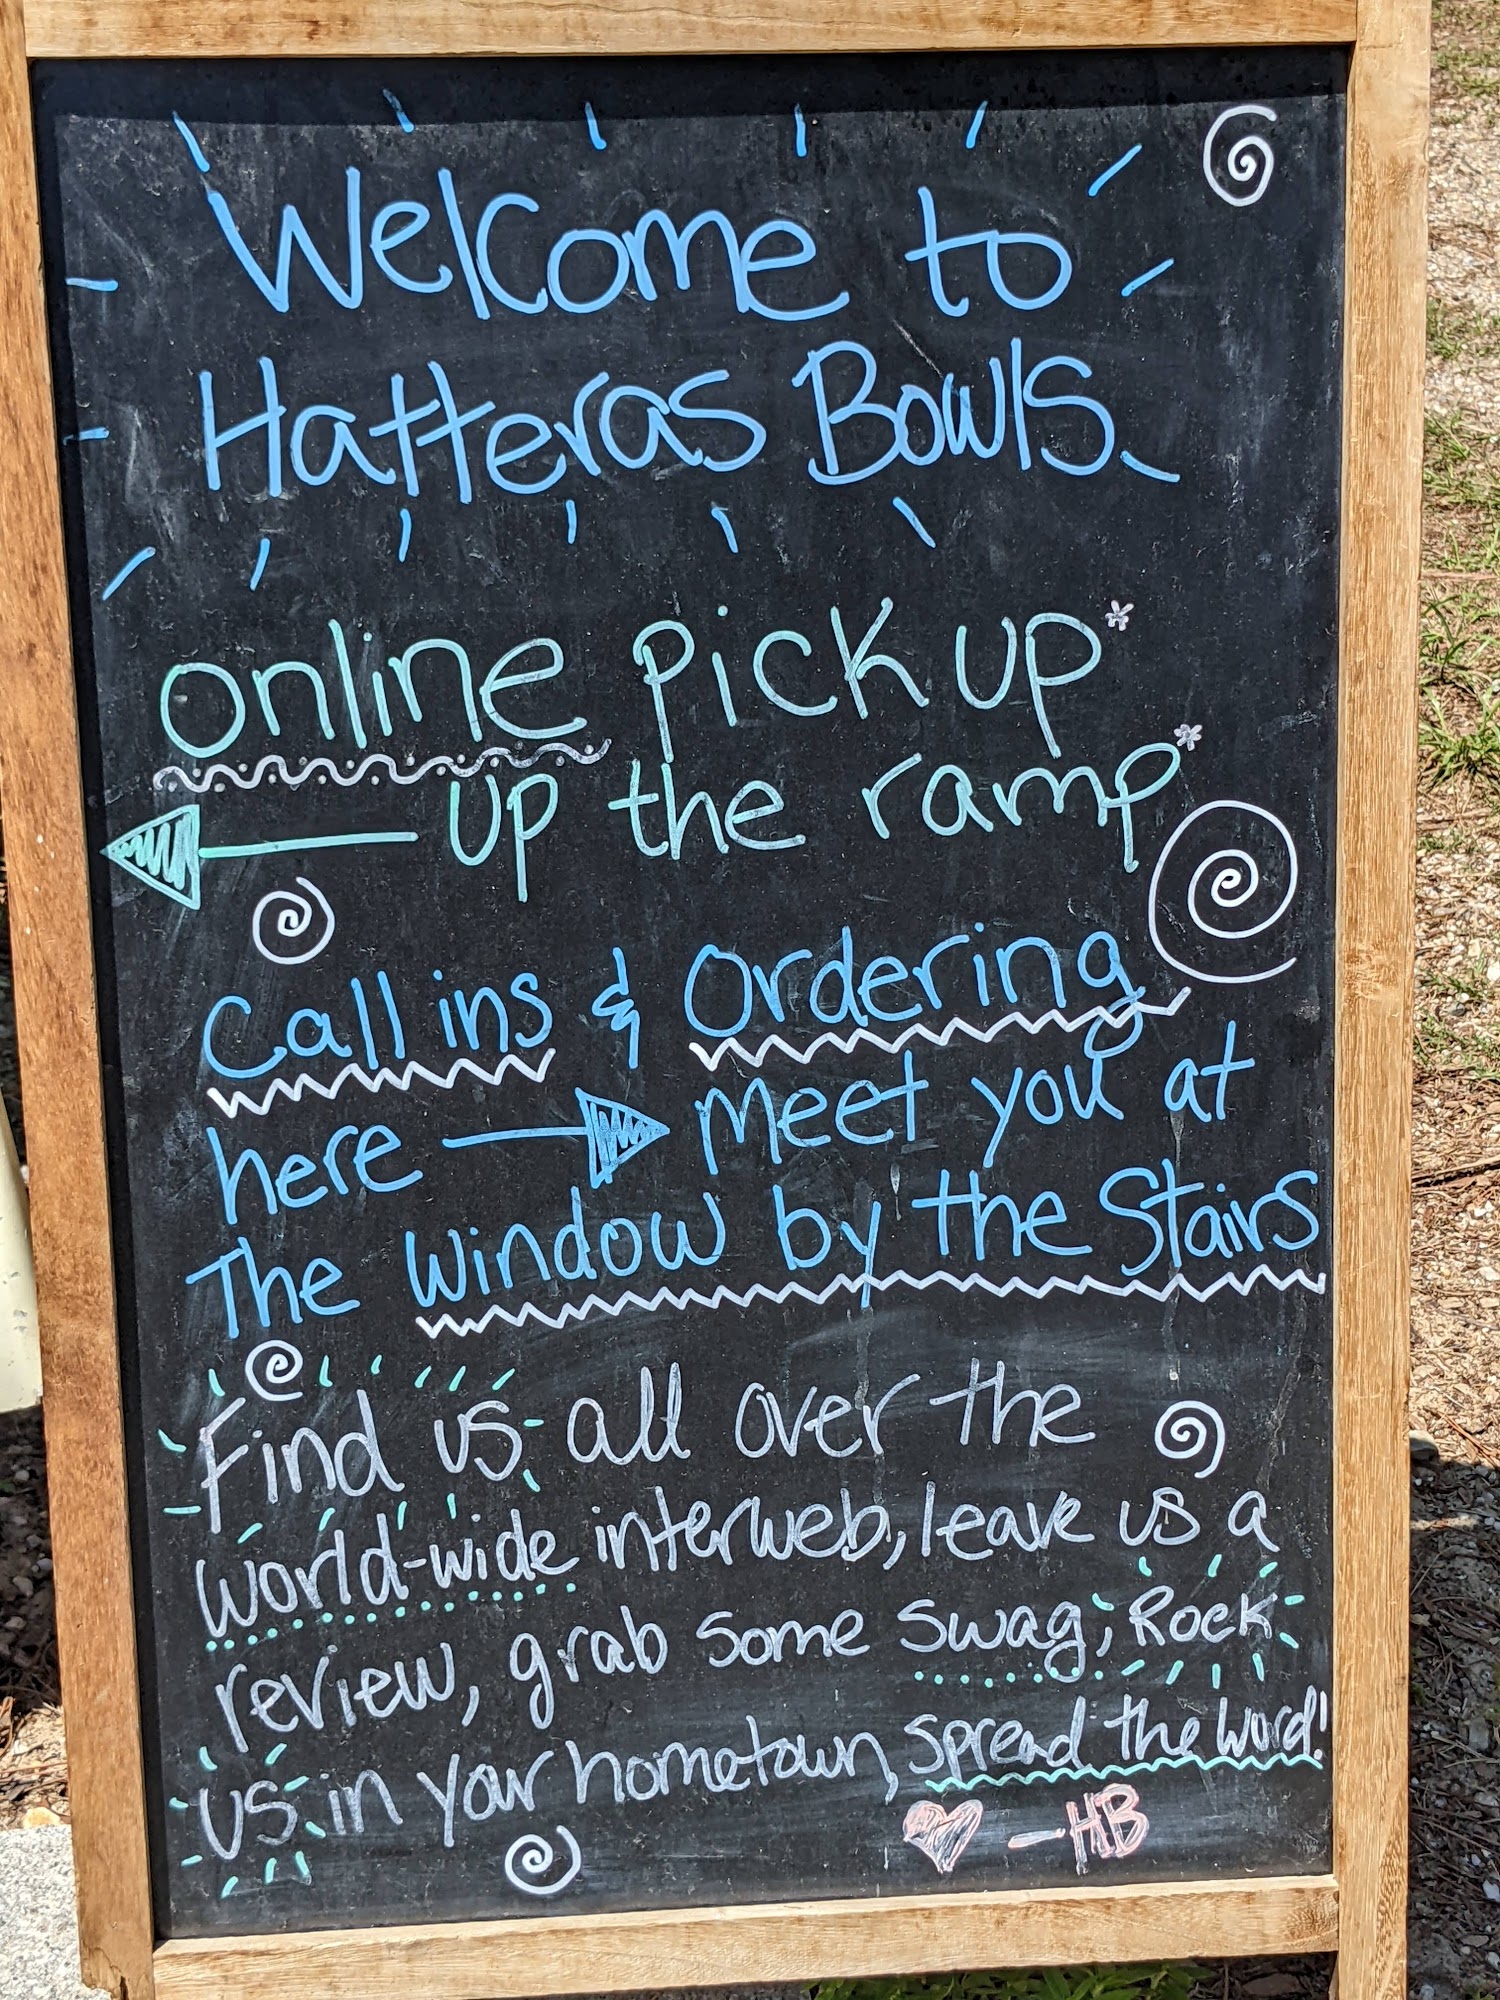 Welcome to
Hatteras Bowls
Online Pick up*
up the ramp*
Call ins & Ordering
here meet you at
The Window by the Stairs
Find us all over the
world-wide interweb, leave us a
review, grab some swag, Rock
us in your hometown, spread the word!
-HB